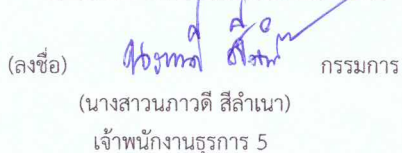 (ลงชื่อ) กรรมการ
(นางสาวนภาวดี สีลำเนา)
เจ้าพนักงานธุรการ 5